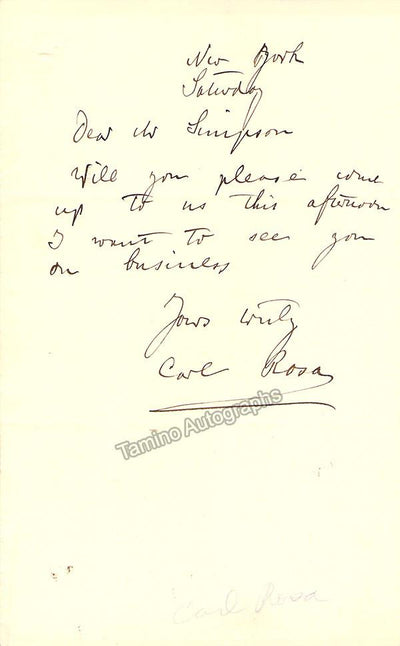 New York
Saturday
Dear Mr Simpson
Will you please come
up to us this afternoon
I want to see you
on business
Yours truly
Carl Rosa
Tamino Autographs
Carl Rosa